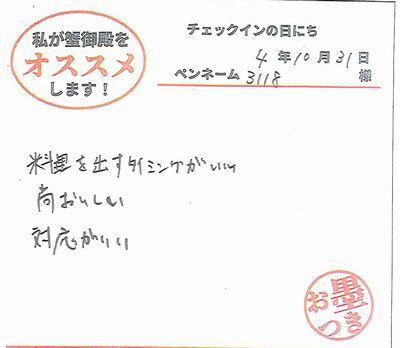 私が蟹御殿を
オススメ
します！
チェックインの日にち
4年10月31日
ペンネーム 3118 様
料理を出すタイミングがいい
尚おいしい
対応がいい
お墨
つき